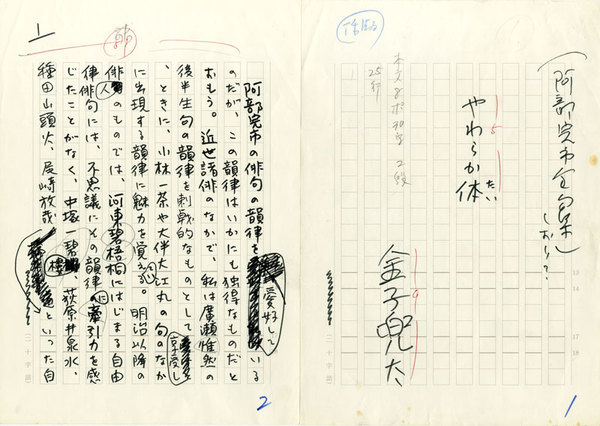 (阿部完市全句集しおり?)
やわらか体
たい
金子兜太
本文8ポ和文2段
25行
13
14
17
18
1
1
阿部完市の俳句の韻律を愛好している
のだが、この韻律はいかにも独得なものだと
おもう。近世諸俳のなかで、私は廣瀬惟然の
後半生句の韻律を刺戟的なものとして享受し
、ときに、小林一茶や大伴大江丸の句のなか
に出現する韻律に魅力を覚える。明治以降の
俳人のものでは、河東碧梧桐にはじまる自由
律俳句には、不思議にその韻律に牽引力を感
じたことがなく、中塚一碧樓、荻原井泉水、
種田山頭火、尾崎放哉といった自
(二十字詰)
2